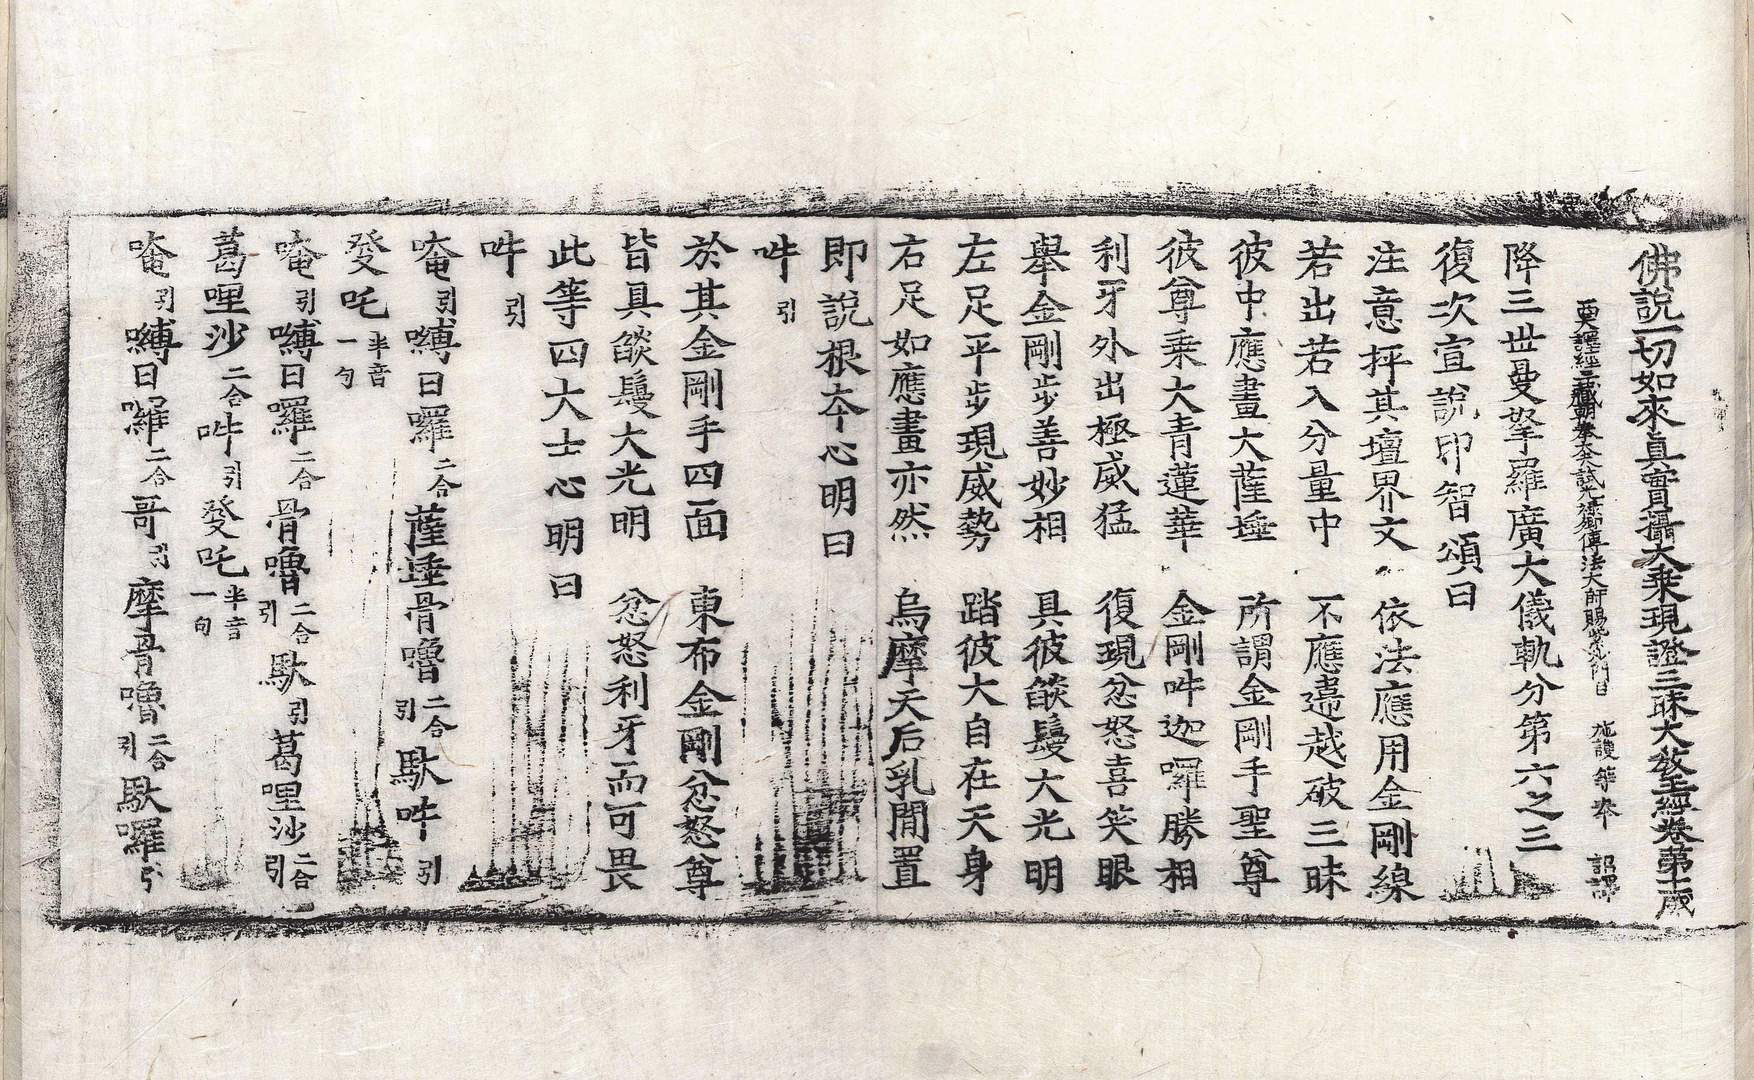 佛說一切如來眞實攝大乘現證三昧大教王經卷第十 盛
西天譯經三藏朝奉大夫試光祿卿傳法大師賜紫沙門臣 施護 等奉 詔譯
降三世曼拏羅廣大儀軌分第六之三
復次宣說印智頌曰
注意抨其壇界文 依法應用金剛線
若出若入分量中 不應違越破三昧
彼中應畫大薩埵 所謂金剛手聖尊
彼尊乘大青蓮華 金剛吽迦囉勝相
利牙外出極威猛 復現忿怒喜笑眼
舉金剛步善妙相 具彼燄鬘大光明
左足平步現威勢 踏彼大自在天身
右足如應畫亦然 烏摩天后乳間置
即說根本心明曰
吽引
於其金剛手四面 東布金剛忿怒尊
皆具燄鬘大光明 忿怒利牙而可畏
此等四大士心明曰
吽引
唵引嚩日囉二合薩埵骨嚕二合引馱吽引
發吒半音一句
唵引嚩日囉二合骨嚕二合引馱引葛哩沙二合引
葛哩沙二合吽引發吒半音一句
唵引嚩日囉二合哥引摩骨嚕二合引馱囉引